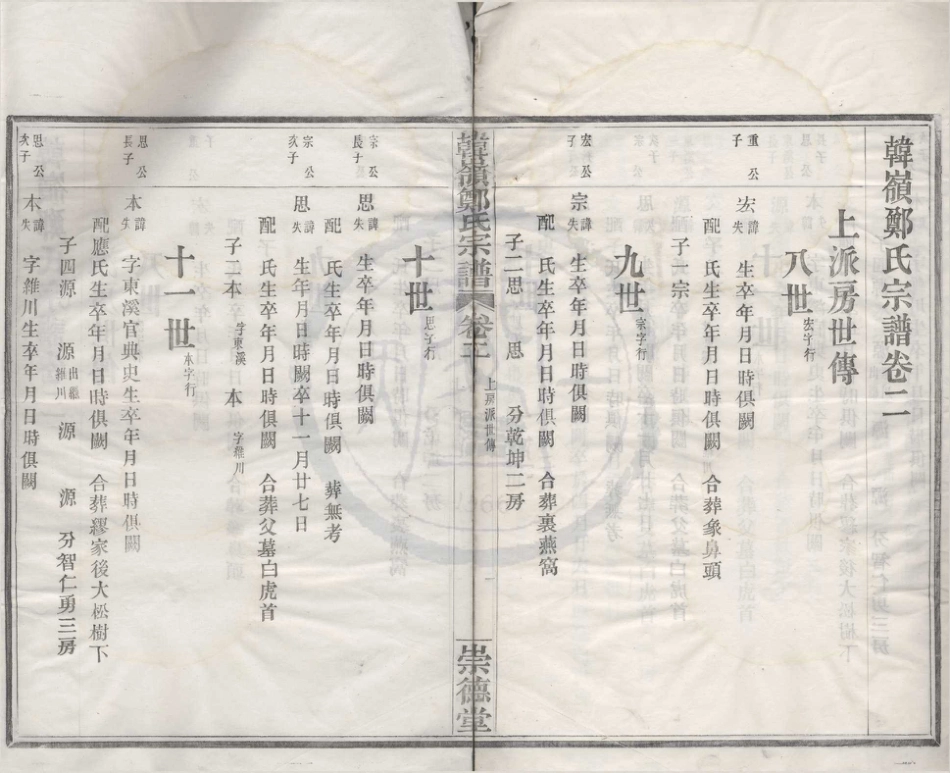 韓嶺鄭氏宗譜卷二
上派房世傳
八世宏字行
重公子
宏諱失 生卒年月日時俱闕
配 氏生卒年月日時俱闕 合葬象鼻頭
子一宗
九世宗字行
宏公子
宗諱失 生卒年月日時俱闕
配 氏生卒年月日時俱闕 合葬裏燕窩
子二思 思 分乾坤二房
韓嶺鄭氏宗譜 卷二 上房派世傳 崇德堂
十世思字行
宗公長子
思諱失 生卒年月日時俱闕
配 氏生卒年月日時俱闕 葬無考
宗公次子
思諱失 生年月日時闕卒十一月廿七日
配 氏生卒年月日時俱闕 合葬父墓白虎首
子二本字東溪 本字雒川
十一世本字行
思公長子
本諱失 字東溪官典史生卒年月日時俱闕
配應氏生卒年月日時俱闕 合葬繆家後大松樹下
子四源 源出繼雒川 源 源 分智仁勇三房
思公次子
本諱失 字雒川生卒年月日時俱闕